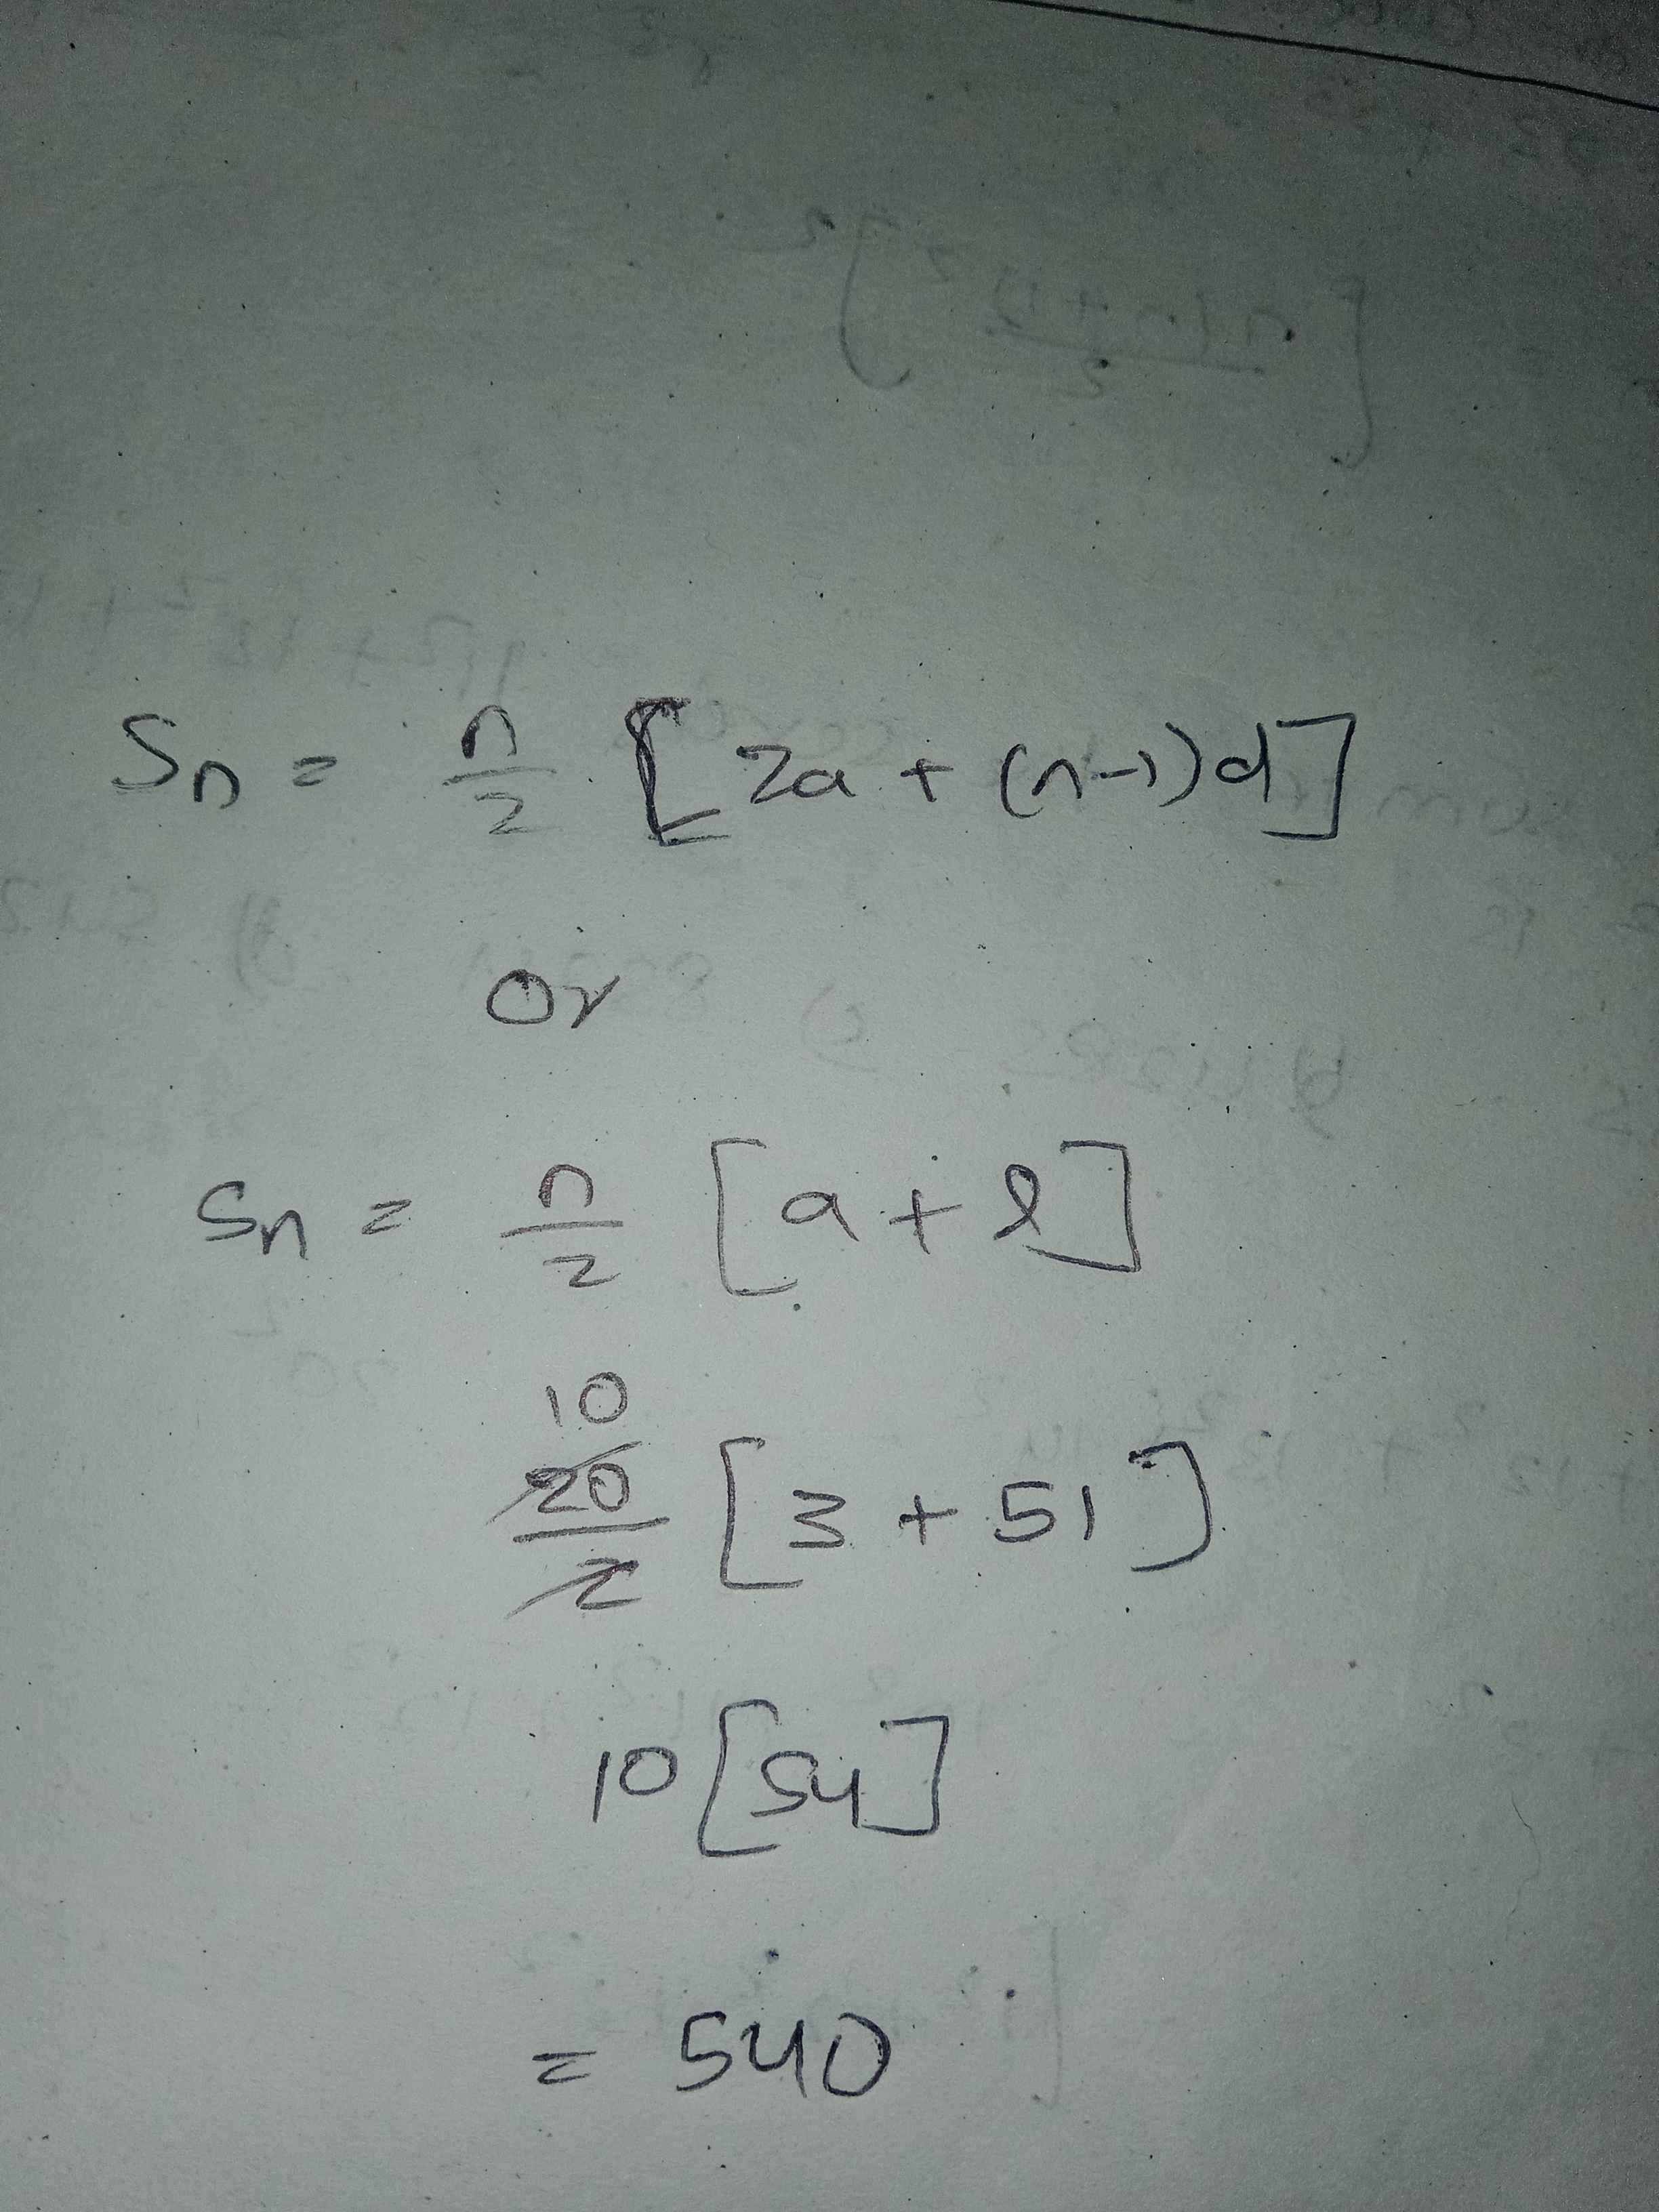 Sn = n/2 [2a + (n-1)d]
Or
Sn = n/2 [a + l]
10
20/2 [3 + 51]
10[54]
= 540